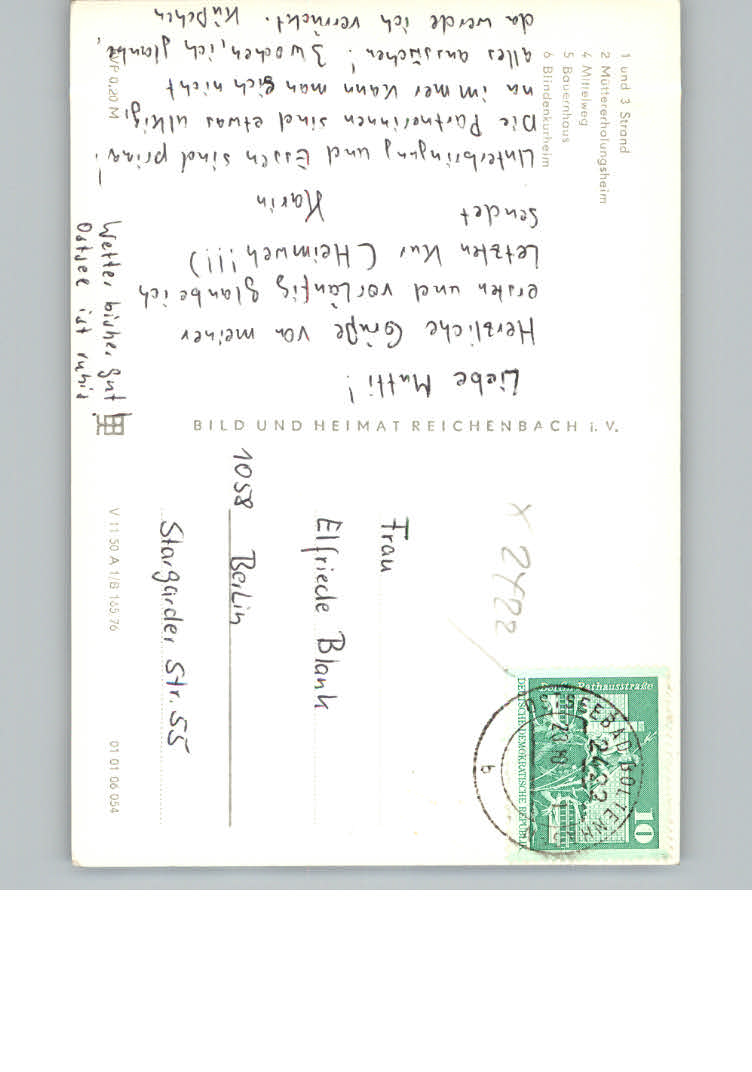 1 und 3 Strand
2 Müttererholungsheim
4 Mittelweg
5 Bauernhaus
6 Blindenkurheim
Liebe Mutti!
Herzliche Grüße von meiner
ersten und vorläufig glaube ich
Letzten Kur (Heimweh!!!)
sendet
Karin
Unterbringung und Essen sind prima!
Die Partnerinnen sind etwas ulkig,
na immer kann man sich nicht
alles aussuchen! 3 Wochen, ich glaube,
da werde ich verrückt. Küßchen
Wetter bisher gut!
Ostsee ist ruhig
BILD UND HEIMAT REICHENBACH i. V.
X 2422
Frau
Elfriede Blank
1058 Berlin
Stargarder Str. 55
V 11 50 A 1/B 165/76
01 01 06 054
0,20 M
Berlin, Rathausstraße
DEUTSCHE DEMOKRATISCHE REPUBLIK
10
OSTSEEBAD BOLTENHAGEN
2422
b